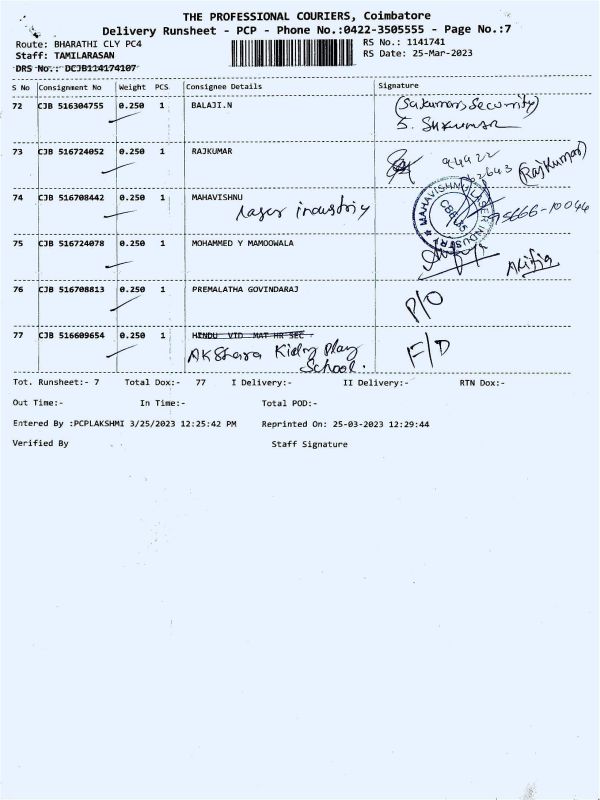 THE PROFESSIONAL COURIERS, Coimbatore
Delivery Runsheet - PCP - Phone No.:0422-3505555 - Page No.:7
Route: BHARATHI CLY PC4 RS No.: 1141741
Staff: TAMILARASAN RS Date: 25-Mar-2023
DRS No.: DCJB114174107
S No Consignment No Weight PCS Consignee Details Signature
72 CJB 516304755 0.250 1 BALAJI.N (Sukumar Security)
S. Sukumar
73 CJB 516724052 0.250 1 RAJKUMAR 94922
62643 (Rajkumar)
74 CJB 516708442 0.250 1 MAHAVISHNU
laser industriy MAHAVISHNU LASER INDUSTRI 95666-10044
75 CJB 516724078 0.250 1 MOHAMMED Y MAMOOWALA
76 CJB 516708813 0.250 1 PREMALATHA GOVINDARAJ P/O
77 CJB 516609654 0.250 1 HINDU VID MAT HR SEC F/D
AKShara Kidzy Play
School.
Tot. Runsheet:- 7 Total Dox:- 77 I Delivery:- II Delivery:- RTN Dox:-
Out Time:- In Time:- Total POD:-
Entered By :PCPLAKSHMI 3/25/2023 12:25:42 PM Reprinted On: 25-03-2023 12:29:44
Verified By Staff Signature